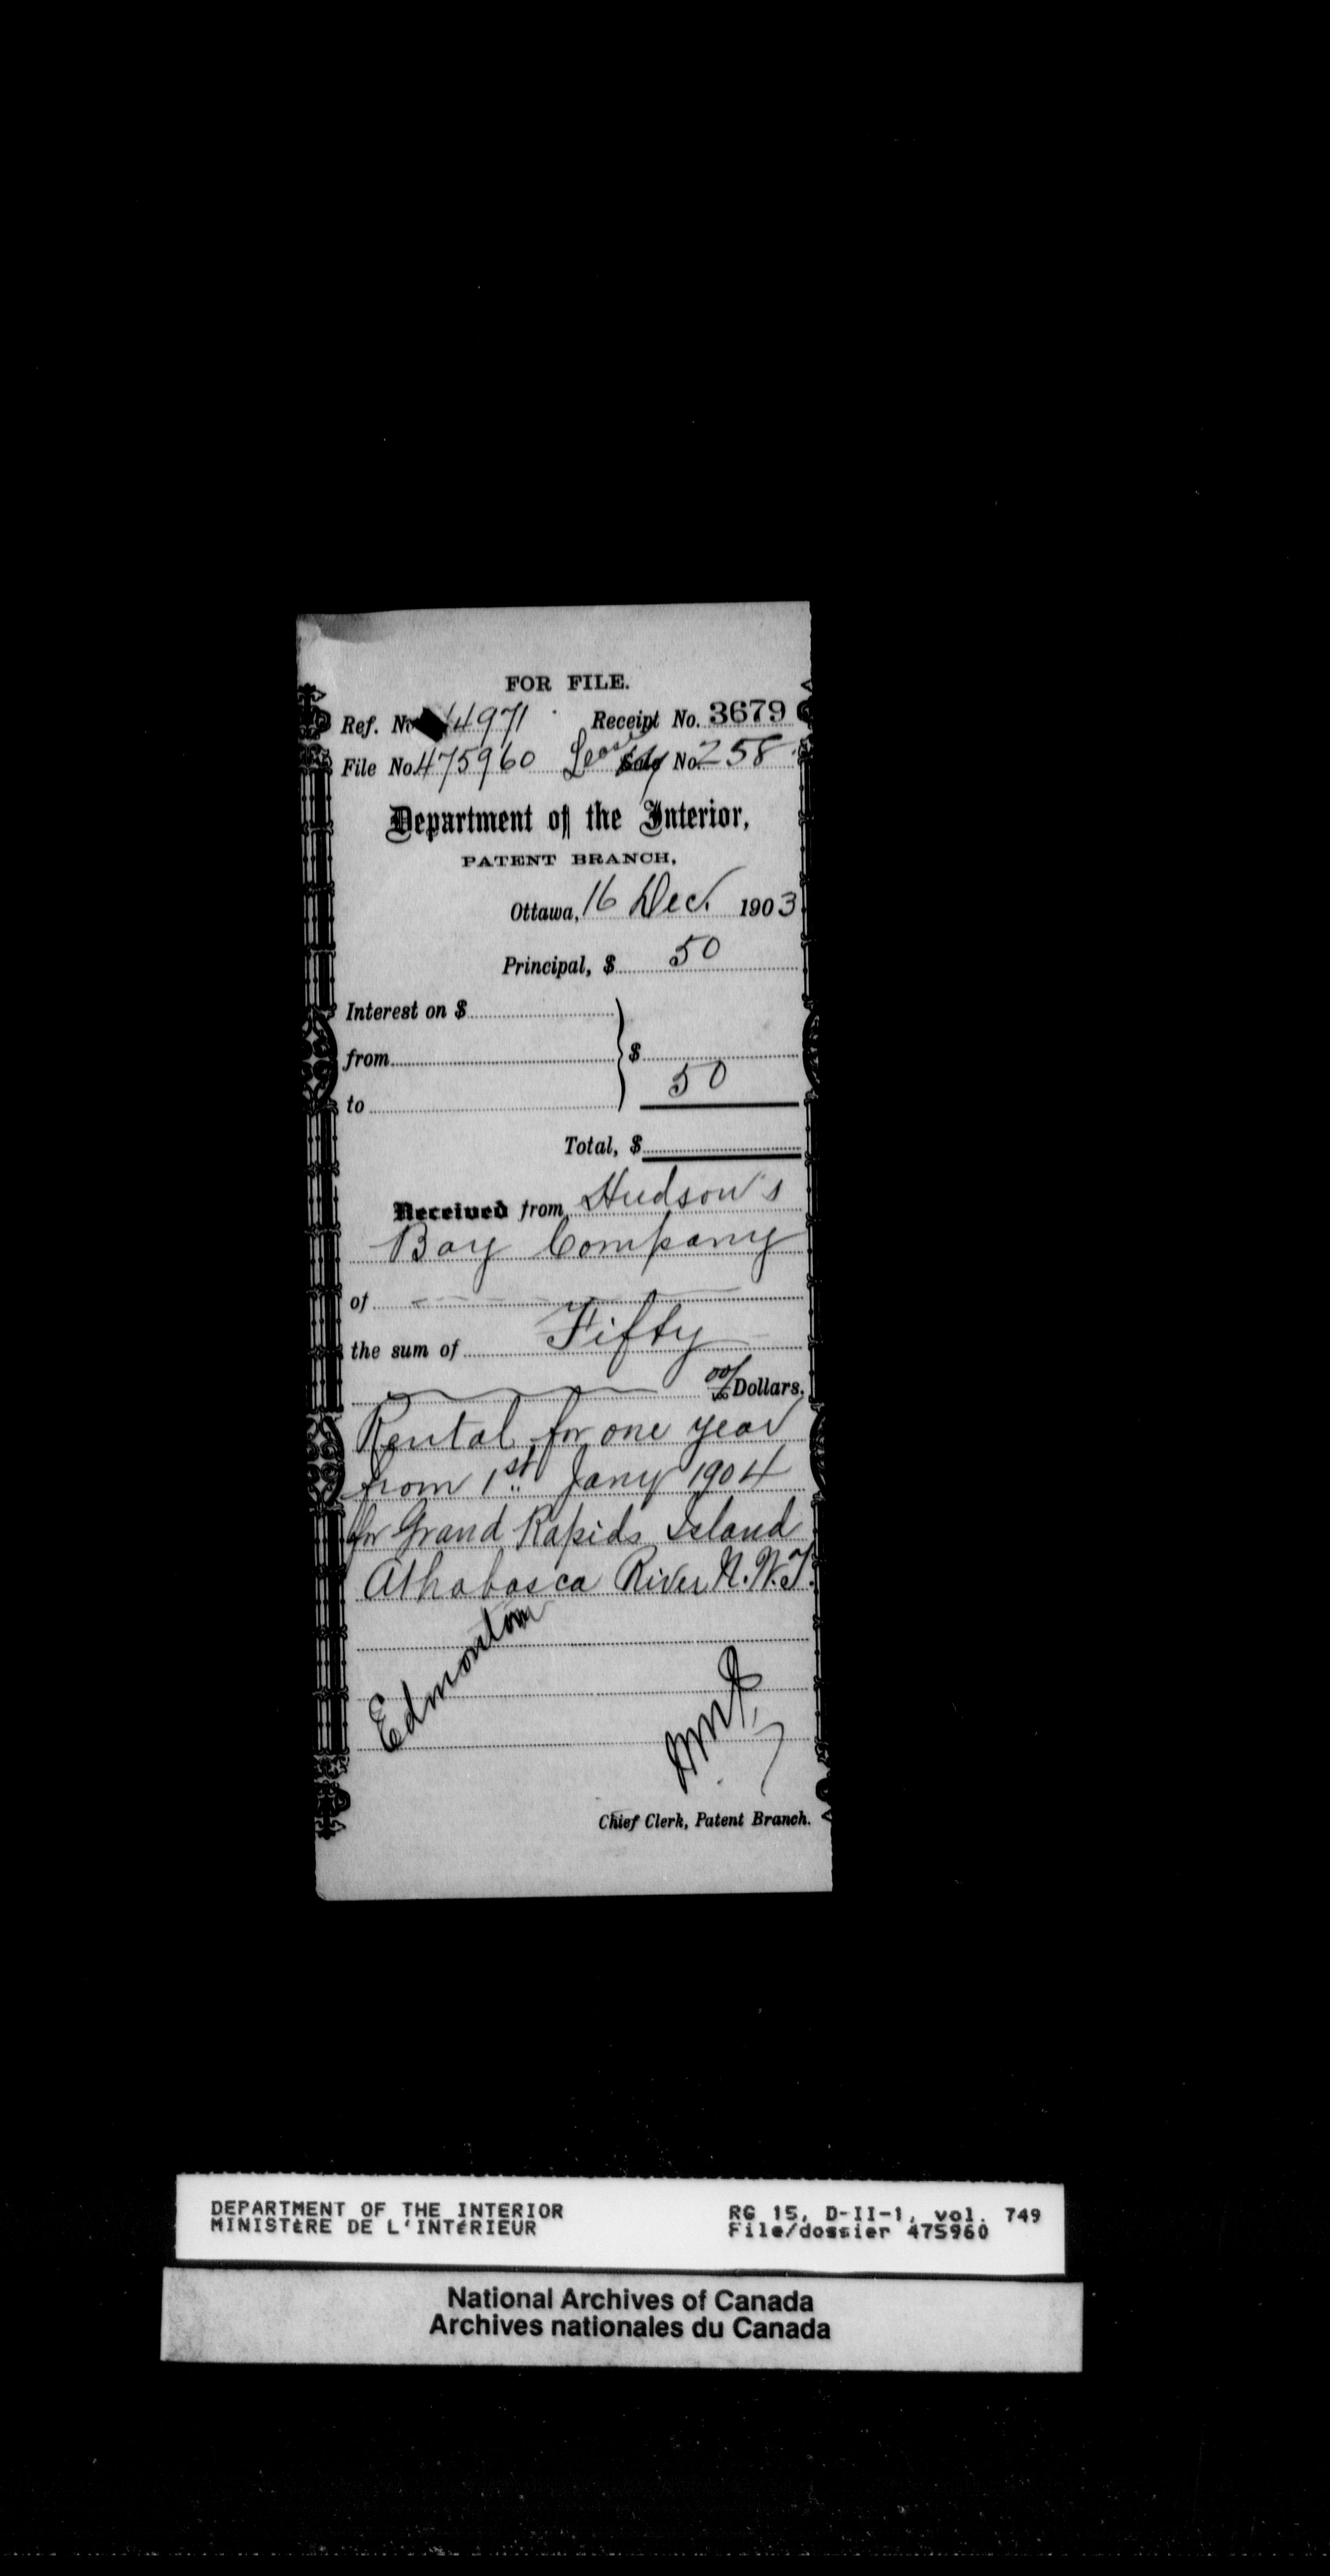 FOR FILE.
Ref. No. 14971 Receipt No. 3679
File No. 475960 Lease No. 258
Department of the Interior,
PATENT BRANCH,
Ottawa, 16 Dec. 1903
Principal, $ 50
Interest on $
from $
to 50
Total, $
Received from Hudson's
Bay Company
of
the sum of Fifty
00/100 Dollars.
Rental for one year
from 1st Jany 1904
for Grand Rapids Island
Athabasca River N.W.T.
Edmonton
Chief Clerk, Patent Branch.
DEPARTMENT OF THE INTERIOR RG 15, D-II-1, vol. 749
MINISTÈRE DE L'INTÉRIEUR File/dossier 475960
National Archives of Canada
Archives nationales du Canada